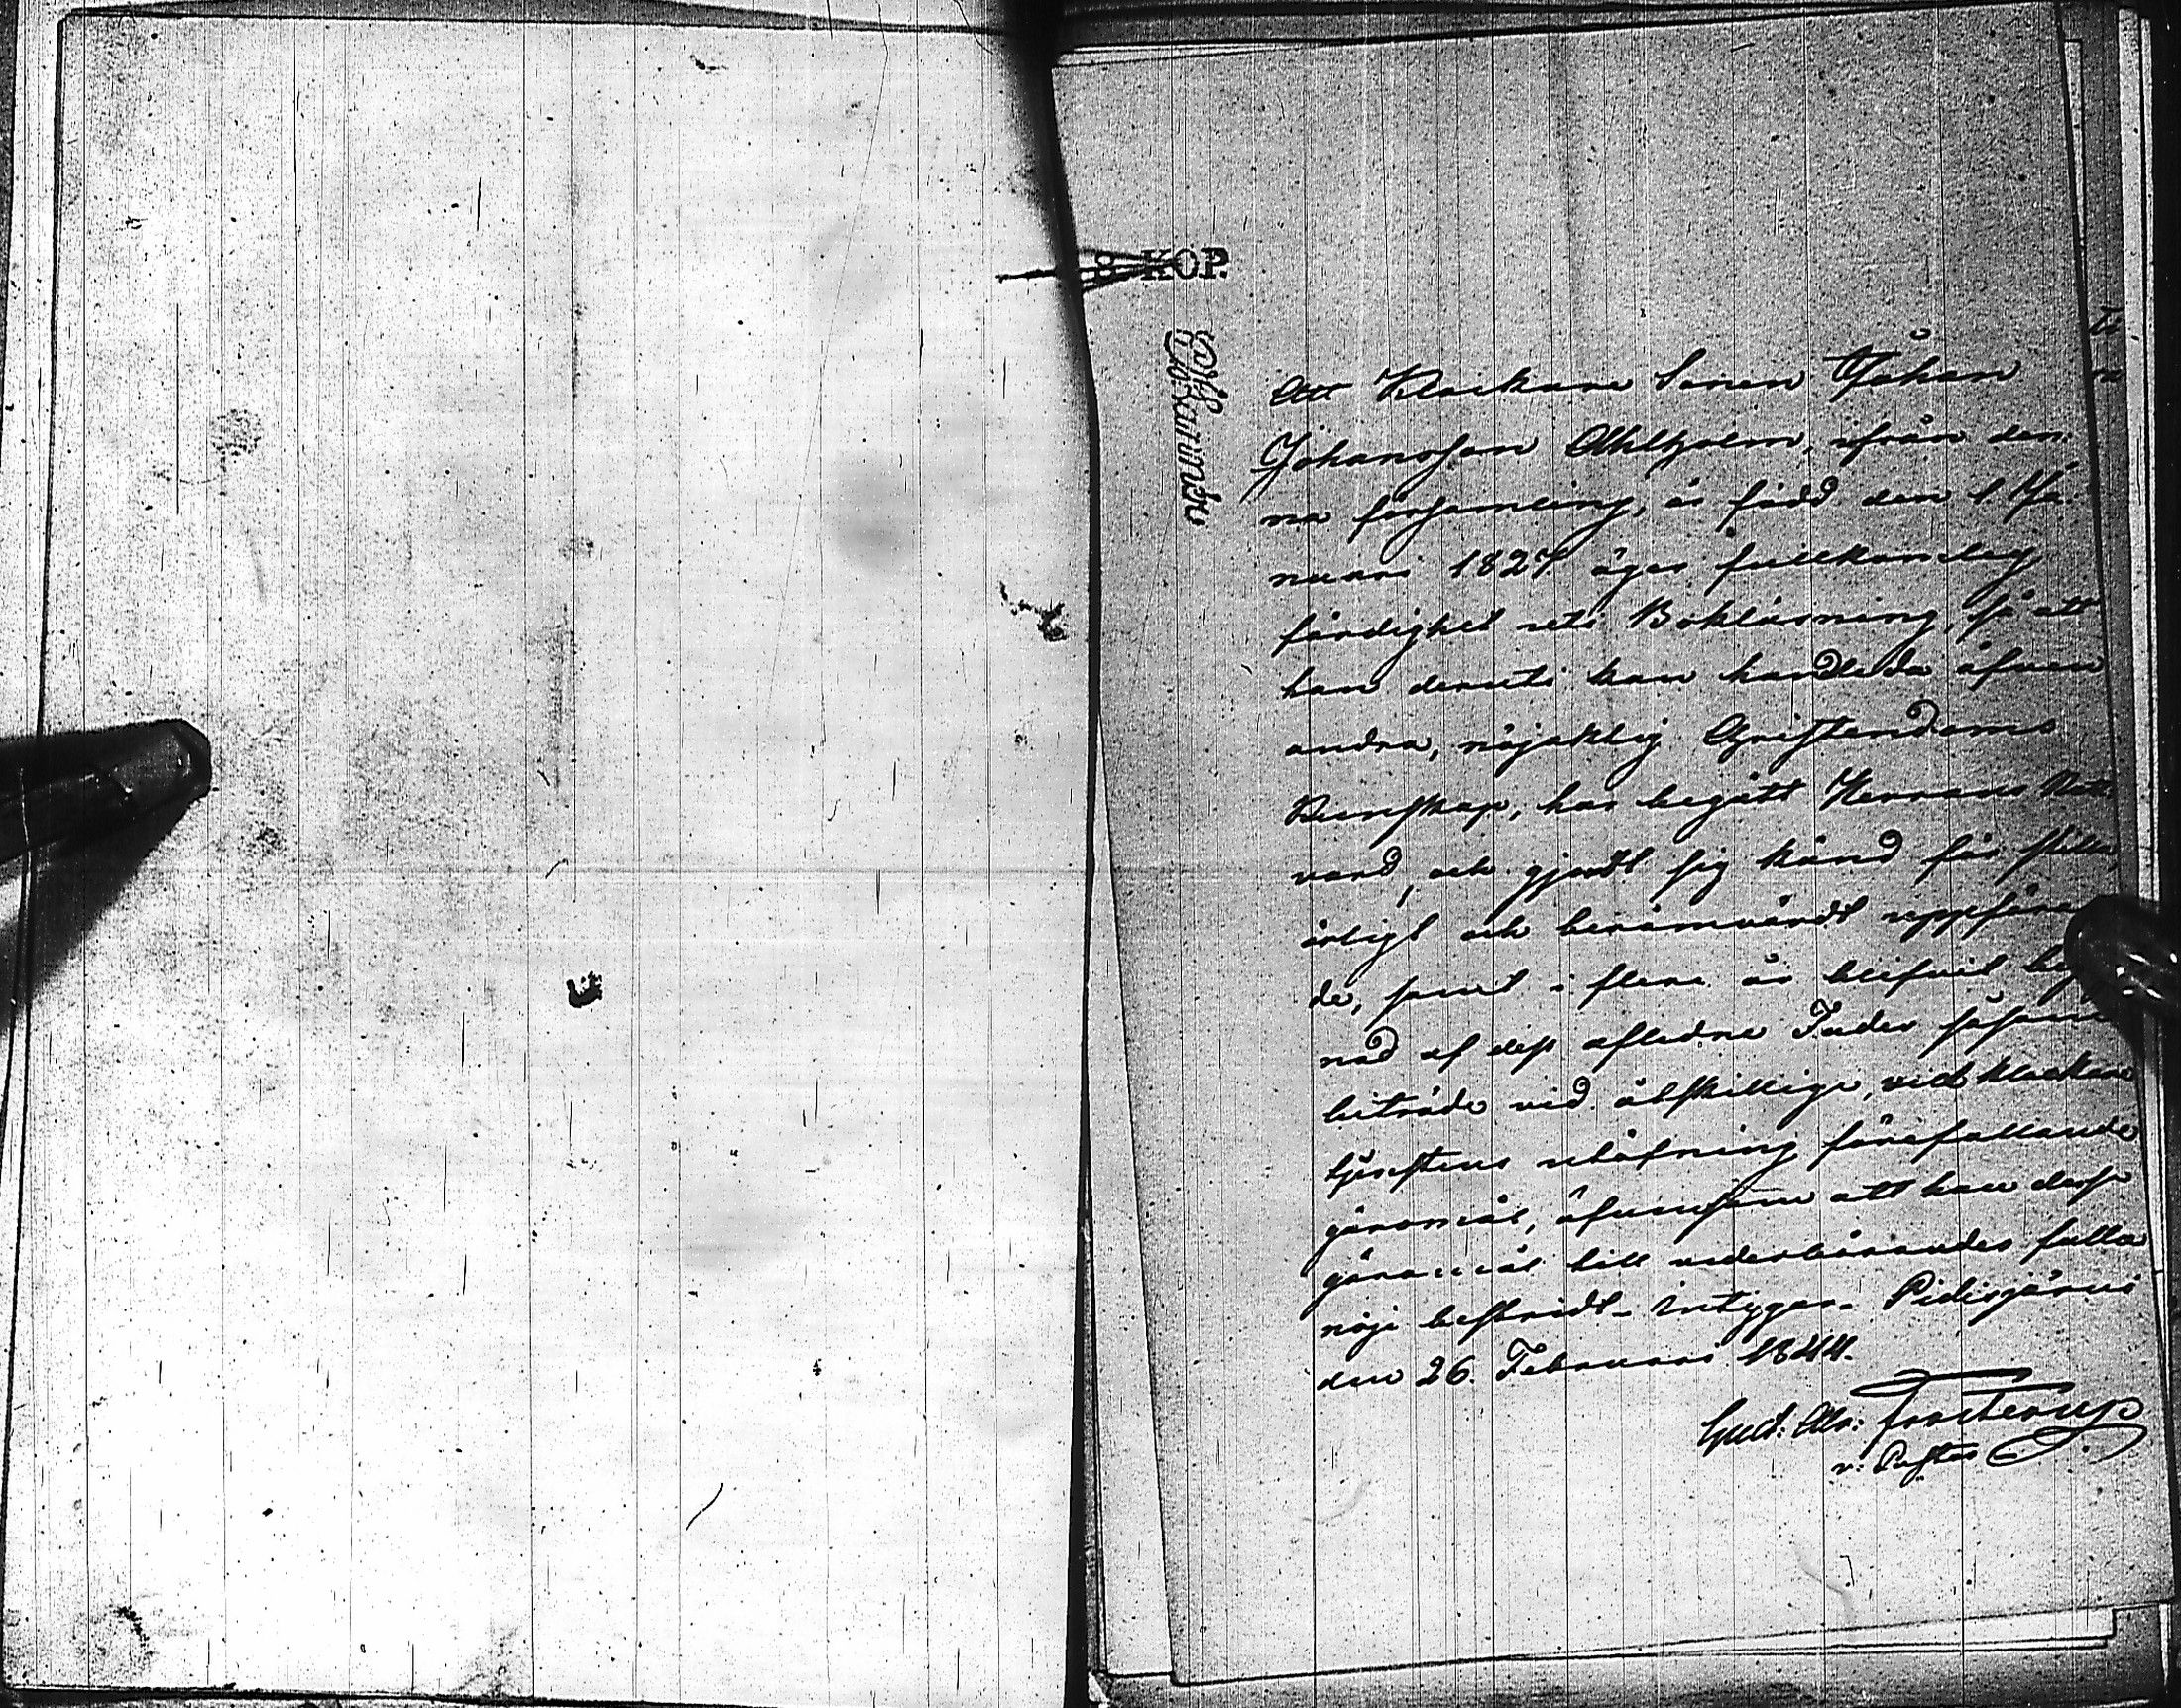 8 KOP.
Att Klockare Sonen Johan
Johansson Ahlholm, ifrån den-
na församling, är född den 1 Ja-
nuari 1827 äger fullkomlig
färdighet uti Bokläsning, så att
han deruti kan handleda äfven
andra, nöjaktig Christendoms
Kunskap, har begått Herrans Natt-
vard, och gjordt sig känd för stilla,
ärligt och berömvärdt uppföran-
de, samt i flere år blifvit
nad af dess aflidne Fader såsom
biträde vid åtskillige, vid klockare
tjenstens utöfning förefallande
göromål, äfvensom att han dessa
göromål till vederbörandes fulla
nöje bestridt - intygar. Pidisjärvi
den 26. Februari 1844.
Gust: Alr: Frosterus
v: Pastor